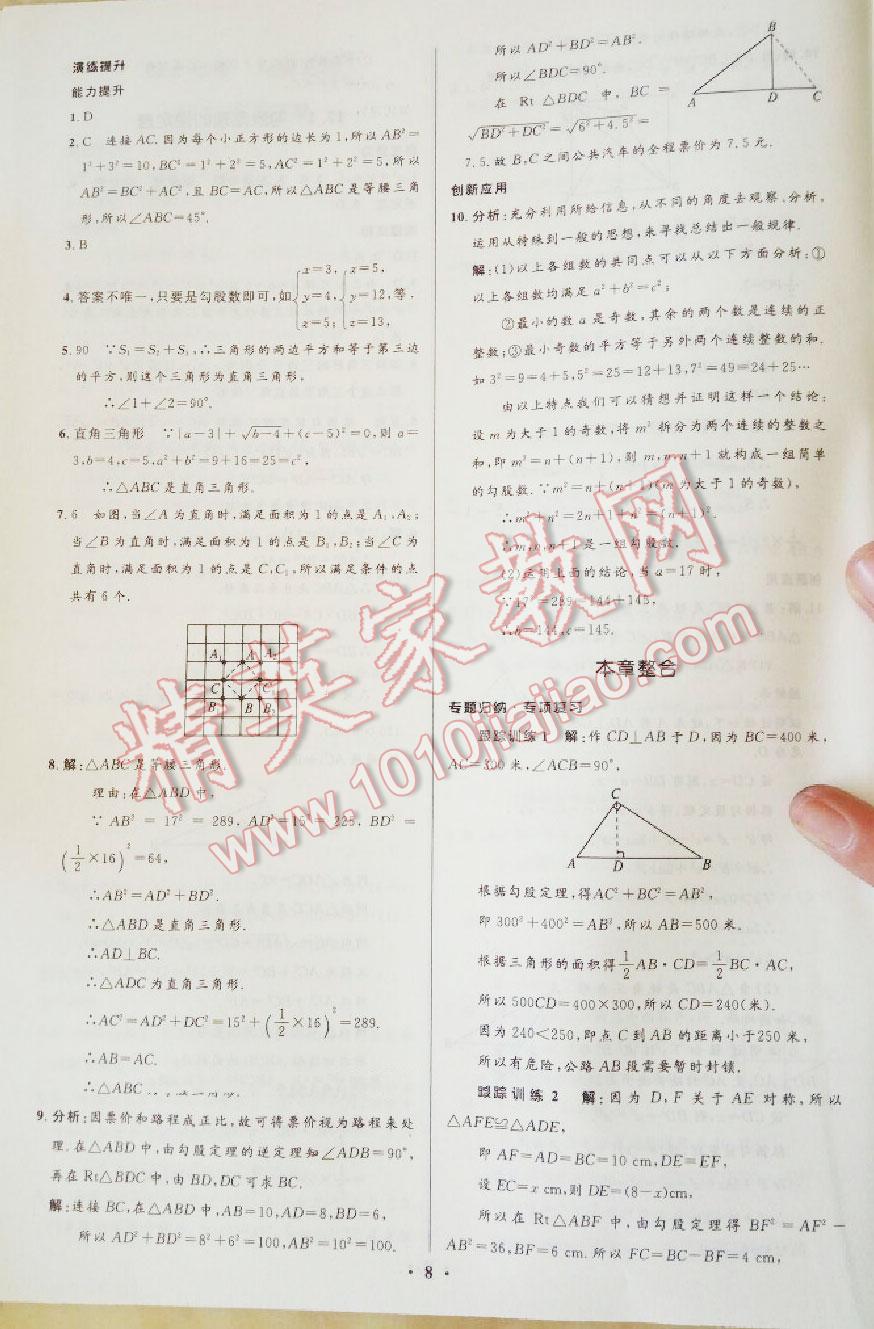 演练提升
能力提升
1. D
2. C 连接 AC. 因为每个小正方形的边长为 1,所以 AB²=
1²+3²=10,BC²=1²+2²=5,AC²=1²+2²=5,所以
AB²=BC²+AC²,且 BC=AC,所以△ABC 是等腰三角
形,所以∠ABC=45°.
3. B
4. 答案不唯一,只要是勾股数即可,如 {x=3, y=4, z=5; {x=5, y=12, z=13, 等.
5. 90 ∵S₁=S₂+S₃,∴三角形的两边平方和等于第三边
的平方,则这个三角形为直角三角形.
∴∠1+∠2=90°.
6. 直角三角形 ∵|a-3|+√(b-4)+(c-5)²=0,则 a=
3,b=4,c=5,a²+b²=9+16=25=c²,
∴△ABC 是直角三角形.
7. 6 如图,当∠A 为直角时,满足面积为 1 的点是 A₁、A₂;
当∠B 为直角时,满足面积为 1 的点是 B₁、B₂;当∠C 为
直角时,满足面积为 1 的点是 C,C₁,所以满足条件的点
共有 6 个.
A₁ A A₂
C C₁
B B₁ B₂
8. 解:△ABC 是等腰三角形.
理由:在△ABD 中,
∵ AB² = 17² = 289, AD²=15² = 225, BD² =
(1/2×16)²=64,
∴AB²=AD²+BD².
∴△ABD 是直角三角形.
∴AD⊥BC.
∴△ADC 为直角三角形.
∴AC²=AD²+DC²=15²+(1/2×16)²=289.
∴AB=AC.
∴△ABC
9. 分析:因票价和路程成正比,故可将票价视为路程来处
理.在△ABD 中,由勾股定理的逆定理知∠ADB=90°,
再在 Rt△BDC 中,由 BD,DC 可求 BC.
解:连接 BC,在△ABD 中,AB=10,AD=8,BD=6,
所以 AD²+BD²=8²+6²=100,AB²=10²=100.
所以 AD²+BD²=AB².
所以∠BDC=90°.
在 Rt △BDC 中, BC =
√(BD²+DC²)=√(6²+4.5²)=
7.5. 故 B,C 之间公共汽车的全程票价为 7.5 元.
B
A D C
创新应用
10. 分析:充分利用所给信息,从不同的角度去观察、分析,
运用从特殊到一般的思想,来寻找总结出一般规律.
解:(1)以上各组数的共同点可以从以下方面分析:①
以上各组数均满足 a²+b²=c²;
②最小的数 a 是奇数,其余的两个数是连续的正
整数;③最小奇数的平方等于另外两个连续整数的和.
如 3²=9=4+5,5²=25=12+13,7²=49=24+25…
由以上特点我们可以猜想并证明这样一个结论:
设 m 为大于 1 的奇数,将 m² 拆分为两个连续的整数之
和,即 m²=n+(n+1),则 m,n,n+1 就构成一组简单
的勾股数.∵m²=n+(n+1)(m 为大于 1 的奇数),
∴m²+n²=2n+1+n²=(n+1)².
∴m,n,n+1 是一组勾股数.
(2)运用上面的结论,当 a=17 时,
∵17²=289=144+145,
∴b=144,c=145.
本章整合
专题归纳 专项复习
跟踪训练 1 解:作 CD⊥AB 于 D,因为 BC=400 米,
AC=300 米,∠ACB=90°,
C
A D B
根据勾股定理,得AC²+BC²=AB²,
即 300²+400²=AB²,所以 AB=500 米.
根据三角形的面积得1/2AB·CD=1/2BC·AC,
所以 500CD=400×300,所以 CD=240(米).
因为 240<250,即点 C 到 AB 的距离小于250 米,
所以有危险,公路 AB 段需要暂时封锁.
跟踪训练 2 解:因为 D,F 关于 AE 对称,所以
△AFE≌△ADE,
即 AF=AD=BC=10 cm,DE=EF,
设 EC=x cm,则 DE=(8-x)cm,
所以在 Rt△ABF 中,由勾股定理得 BF² = AF² -
AB²=36,BF=6 cm. 所以 FC=BC-BF=4 cm.
· 8 ·
精英家教网
www.1010jiajiao.com